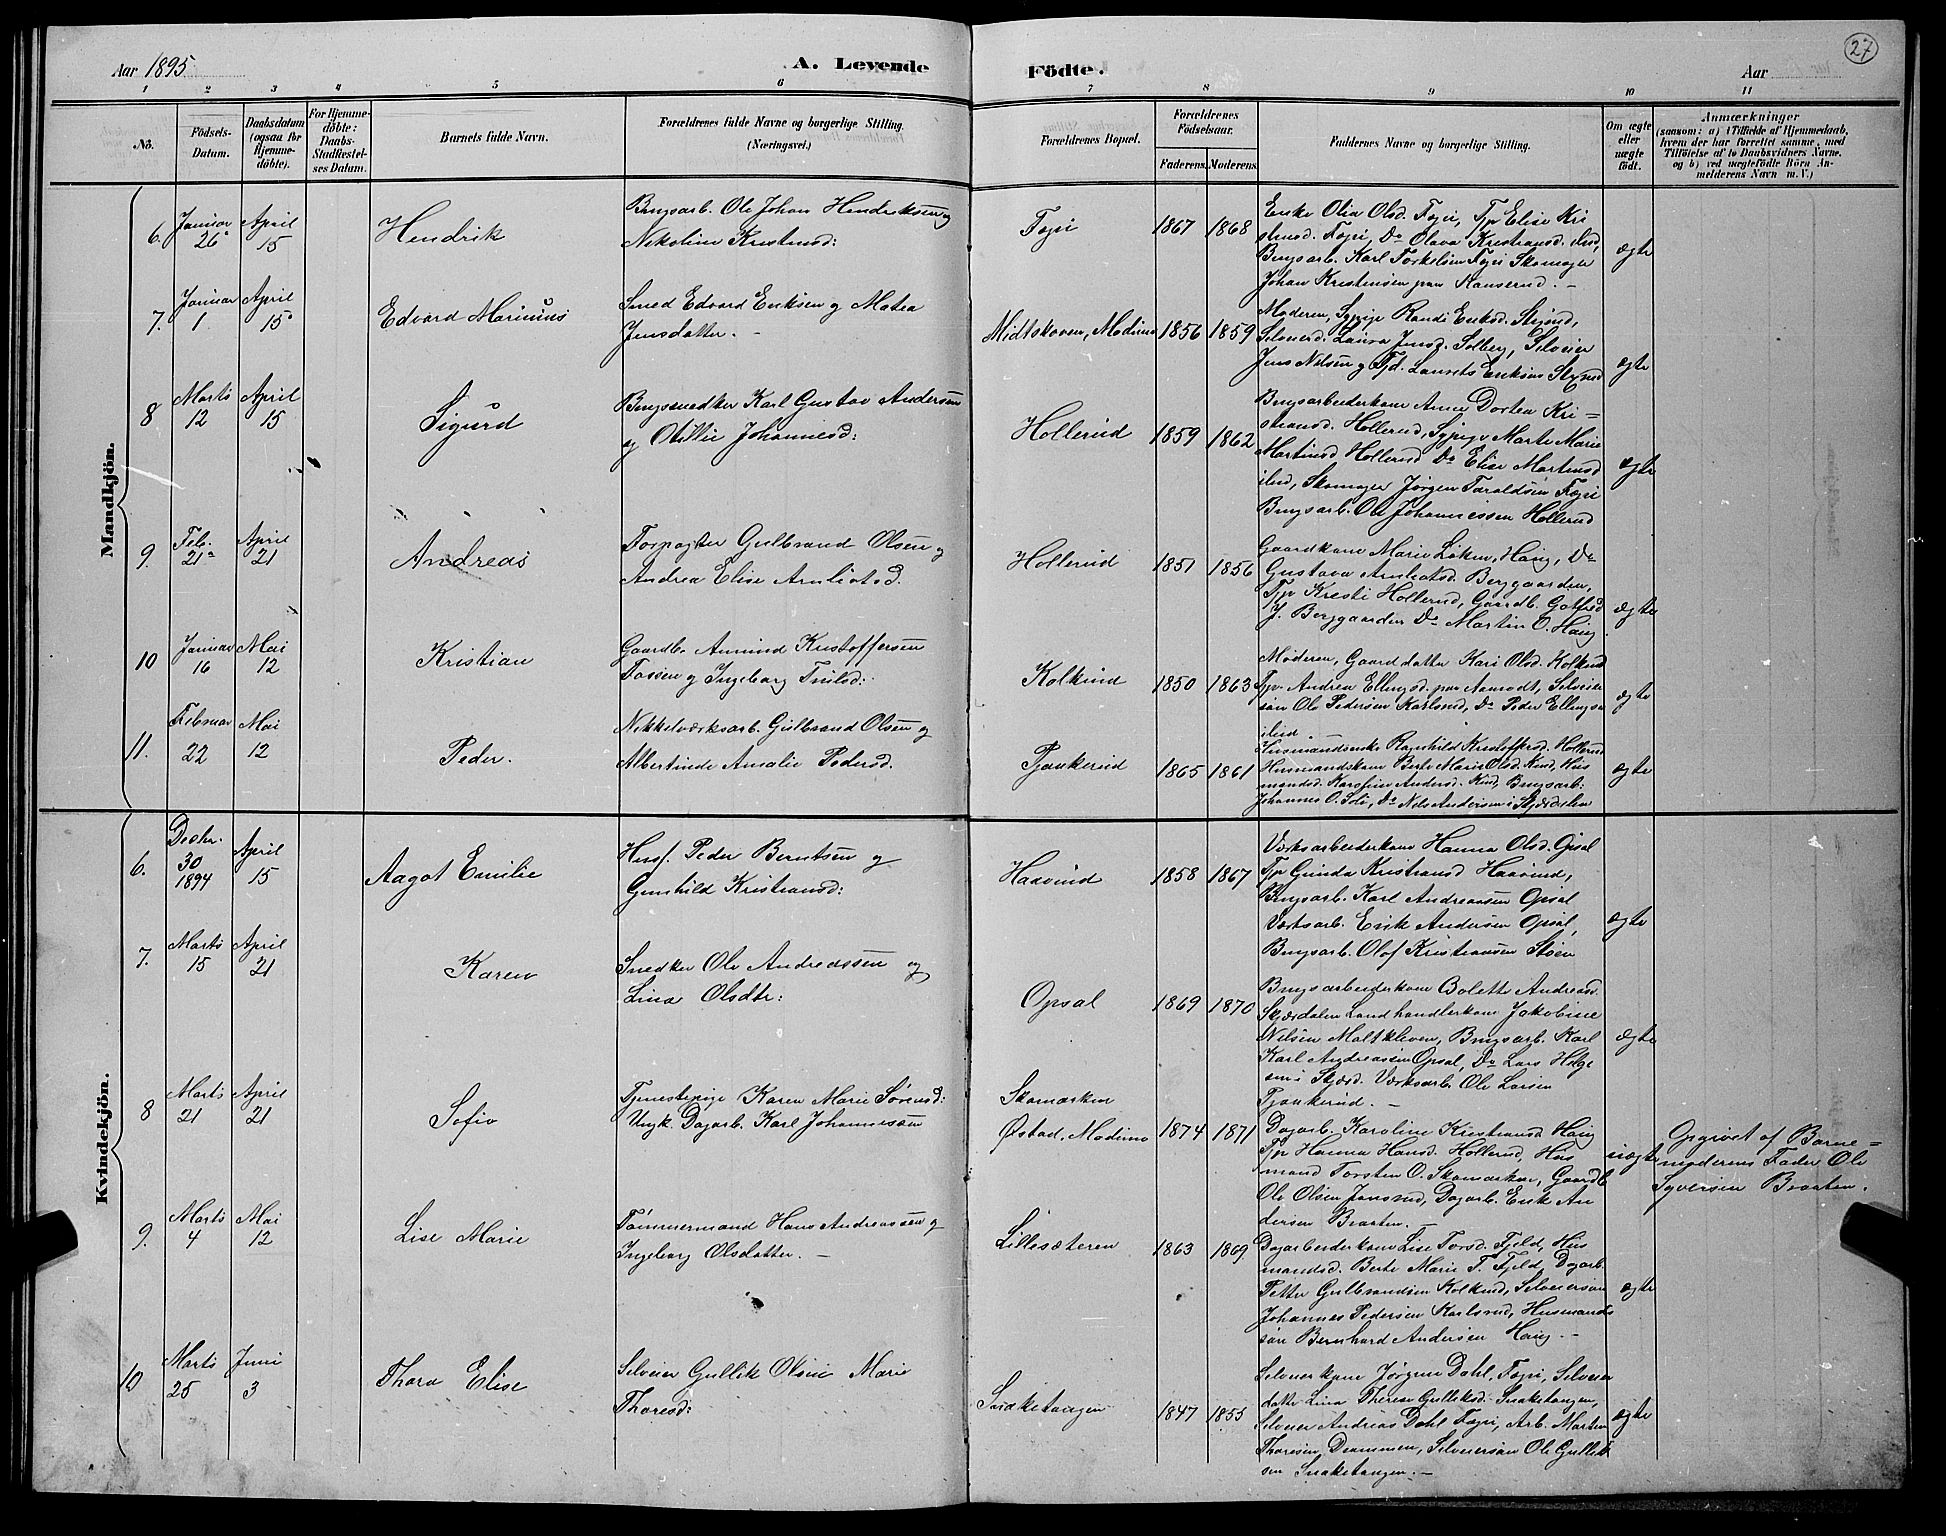 Aar 1895
A. Levende
Födte.
Aar
27
1 2 3 4 5 6 7 8 9 10 11
No.
Födsels-
Datum.
Daabsdatum
(ogsaa for
Hjemme-
döbte).
For Hjemme-
döbte:
Daabs-
Stadfæstel-
ses Datum.
Barnets fulde Navn.
Forældrenes fulde Navne og borgerlige Stilling.
(Næringsvei.)
Forældrenes Bopæl.
Forældrenes
Födselsaar.
Faderens. Moderens.
Faddernes Navne og borgerlige Stilling.
Om ægte
eller
uægte
født.
Anmærkninger
(saasom: a) i Tilfælde af Hjemmedaab,
hvem der har forrettet samme, med
Tilföielse af to Daabsvidners Navne,
og b) ved uægtefödte Börn An-
melderens Navn m. V.)
Mandkjön.
6. Januar 26 April 15
Hendrik
Brugsarb. Ole Johan Hendriksen og
Nikoline Kristensd:
1867 1868
Enke Olia Olsd. Elise Kri
stensd. Do Olava Kristiansd. ibid,
Brugsarb. Karl Torkelsen Skomager
Johan Kristensen paa
ægte
7. Januar 1 April 15
Edvard Marinius
Smed Edvard Eriksen og Matea
Jensdatter. -
Midtskoven, Modum 1856 1859
Moderen, Sypige Randi Eriksd.
Laura Jensd. Solberg, Selveier
Jens Nilsen og Laurits Eriksen
ægte
8 Marts 12 April 15
Sigurd
Brugssnedker Karl Gustav Andersen
og Otillie Johannesd:
Hollerud 1859 1862
Brugsarbeiderkone Anne Dortea Kri=
stiansd. Hollerud, Sypige Marte Marie
Martinsd Hollerud Do Elise Martinsd
ibid, Skomager Jørgen Taraldsen
Brugsarb. Ole Johannessen Hollerud
ægte
9. Feb. 21 April 21
Andreas
Forpagter Gulbrand Olsen og
Andrea Elise Arnliotsd.
Hollerud 1851 1856
Gaardkone Marie Løken, Haug, Do
Gustava Arnliotsd. Berggaarden,
Kresti Hollerud, Gaardb. Gotfred
J. Berggaarden Do Martin O. Haug.
ægte
10 Januar 16 Mai 12
Kristian
Gaardb. Amund Kristoffersen
Fossen og Ingeborg
Kolkind 1850 1863
Moderen, Gaarddatter Kari Olsd. Kolkind
Andrea Ellingsd. paa Selveier
søn Ole Pedersen Karlsrud, Do Peder Ellingsen
ibid. -
ægte
11. Februar 22 Mai 12
Peder.
Nikkelværksarb. Gulbrand Olsen og
Albertinde Amalie Pedersd.
Tjankerud 1865 1861
Husmandsenke Ragnhild Kristoffersd. Hollerud
Husmandskone Berte Marie Olsd. Hus
mandsd. Karoline Andersd. Brugsarb:
Johannes O. Do Nils Andersen i Skjærdalen
ægte
Kvindekjön.
6. Decbr. 30 1894 April 15
Aagot Emilie
Husf. Peder Berntsen og
Gunhild Kristiansd:
Haavind 1858 1867
Værksarbeiderkone Hanna Olsd. Opsal
Gunda Kristiansd Haavind,
Brugsarb. Karl Andreassen Opsal
Værksarb. Erik Andersen Opsal,
Brugsarb. Olof Kristiansen Støen
ægte
7. Marts 15 April 21
Karen
Snedker Ole Andreassen og
Lina Olsdtr:
Opsal 1869 1870
Brugsarbeiderkone Bolette Andreasd.
Skjærdalen Landhandlerkone Jakobine
Nilsen Moltkleven, Brugsarb. Karl
Karl Andreassen Opsal, Do Lars Helge
sen i Skjærd. Værksarb. Ole Larsen
Tjankerud. -
ægte
8 Marts 21 April 21
Sofie
Tjenestepige Karen Marie Sørensd:
Ungk. Dagarb. Karl Johannesen
Skomarken
Østad, Modum 1874 1871
Dagarb. Karoline Kristiansd Haug
Hanna Hansd. Hollerud, Hus
mand Torsten O. Skomarken, Gaardb
Ole Olsen Jonsrud, Dagarb. Erik An
dersen Braaten. -
uægte
Opgivet af Barne=
moderens Fader Ole
Syversen Braaten.
9. Marts 4 Mai 12
Lise Marie
Tømmermand Hans Andreassen og
Ingeborg Olsdatter. -
Lillesæteren 1863 1869
Dagarbeiderkone Lise Torsd. Fjeld, Hus
mandsd. Berte Marie T. Fjeld, Dagarb.
Petter Gulbrandsen Kolkind, Selveiersøn
Johannes Pedersen Karlsrud, Husmands
søn Bernhard Andersen Haug. -
ægte
10 Marts 25 Juni 3
Thora Elise
Selveier Gullik Olsen Marie
Thoresd:
Snaketangen 1847 1855
Selveierkone Jørgine Dahl, Selveier
datter Lina Therese Gulliksd. Snaketangen,
Selveier Andreas Dahl Arb. Morten
Thoresen Drammen, Selveiersøn Ole Gullik
sen Snaketangen. -
ægte